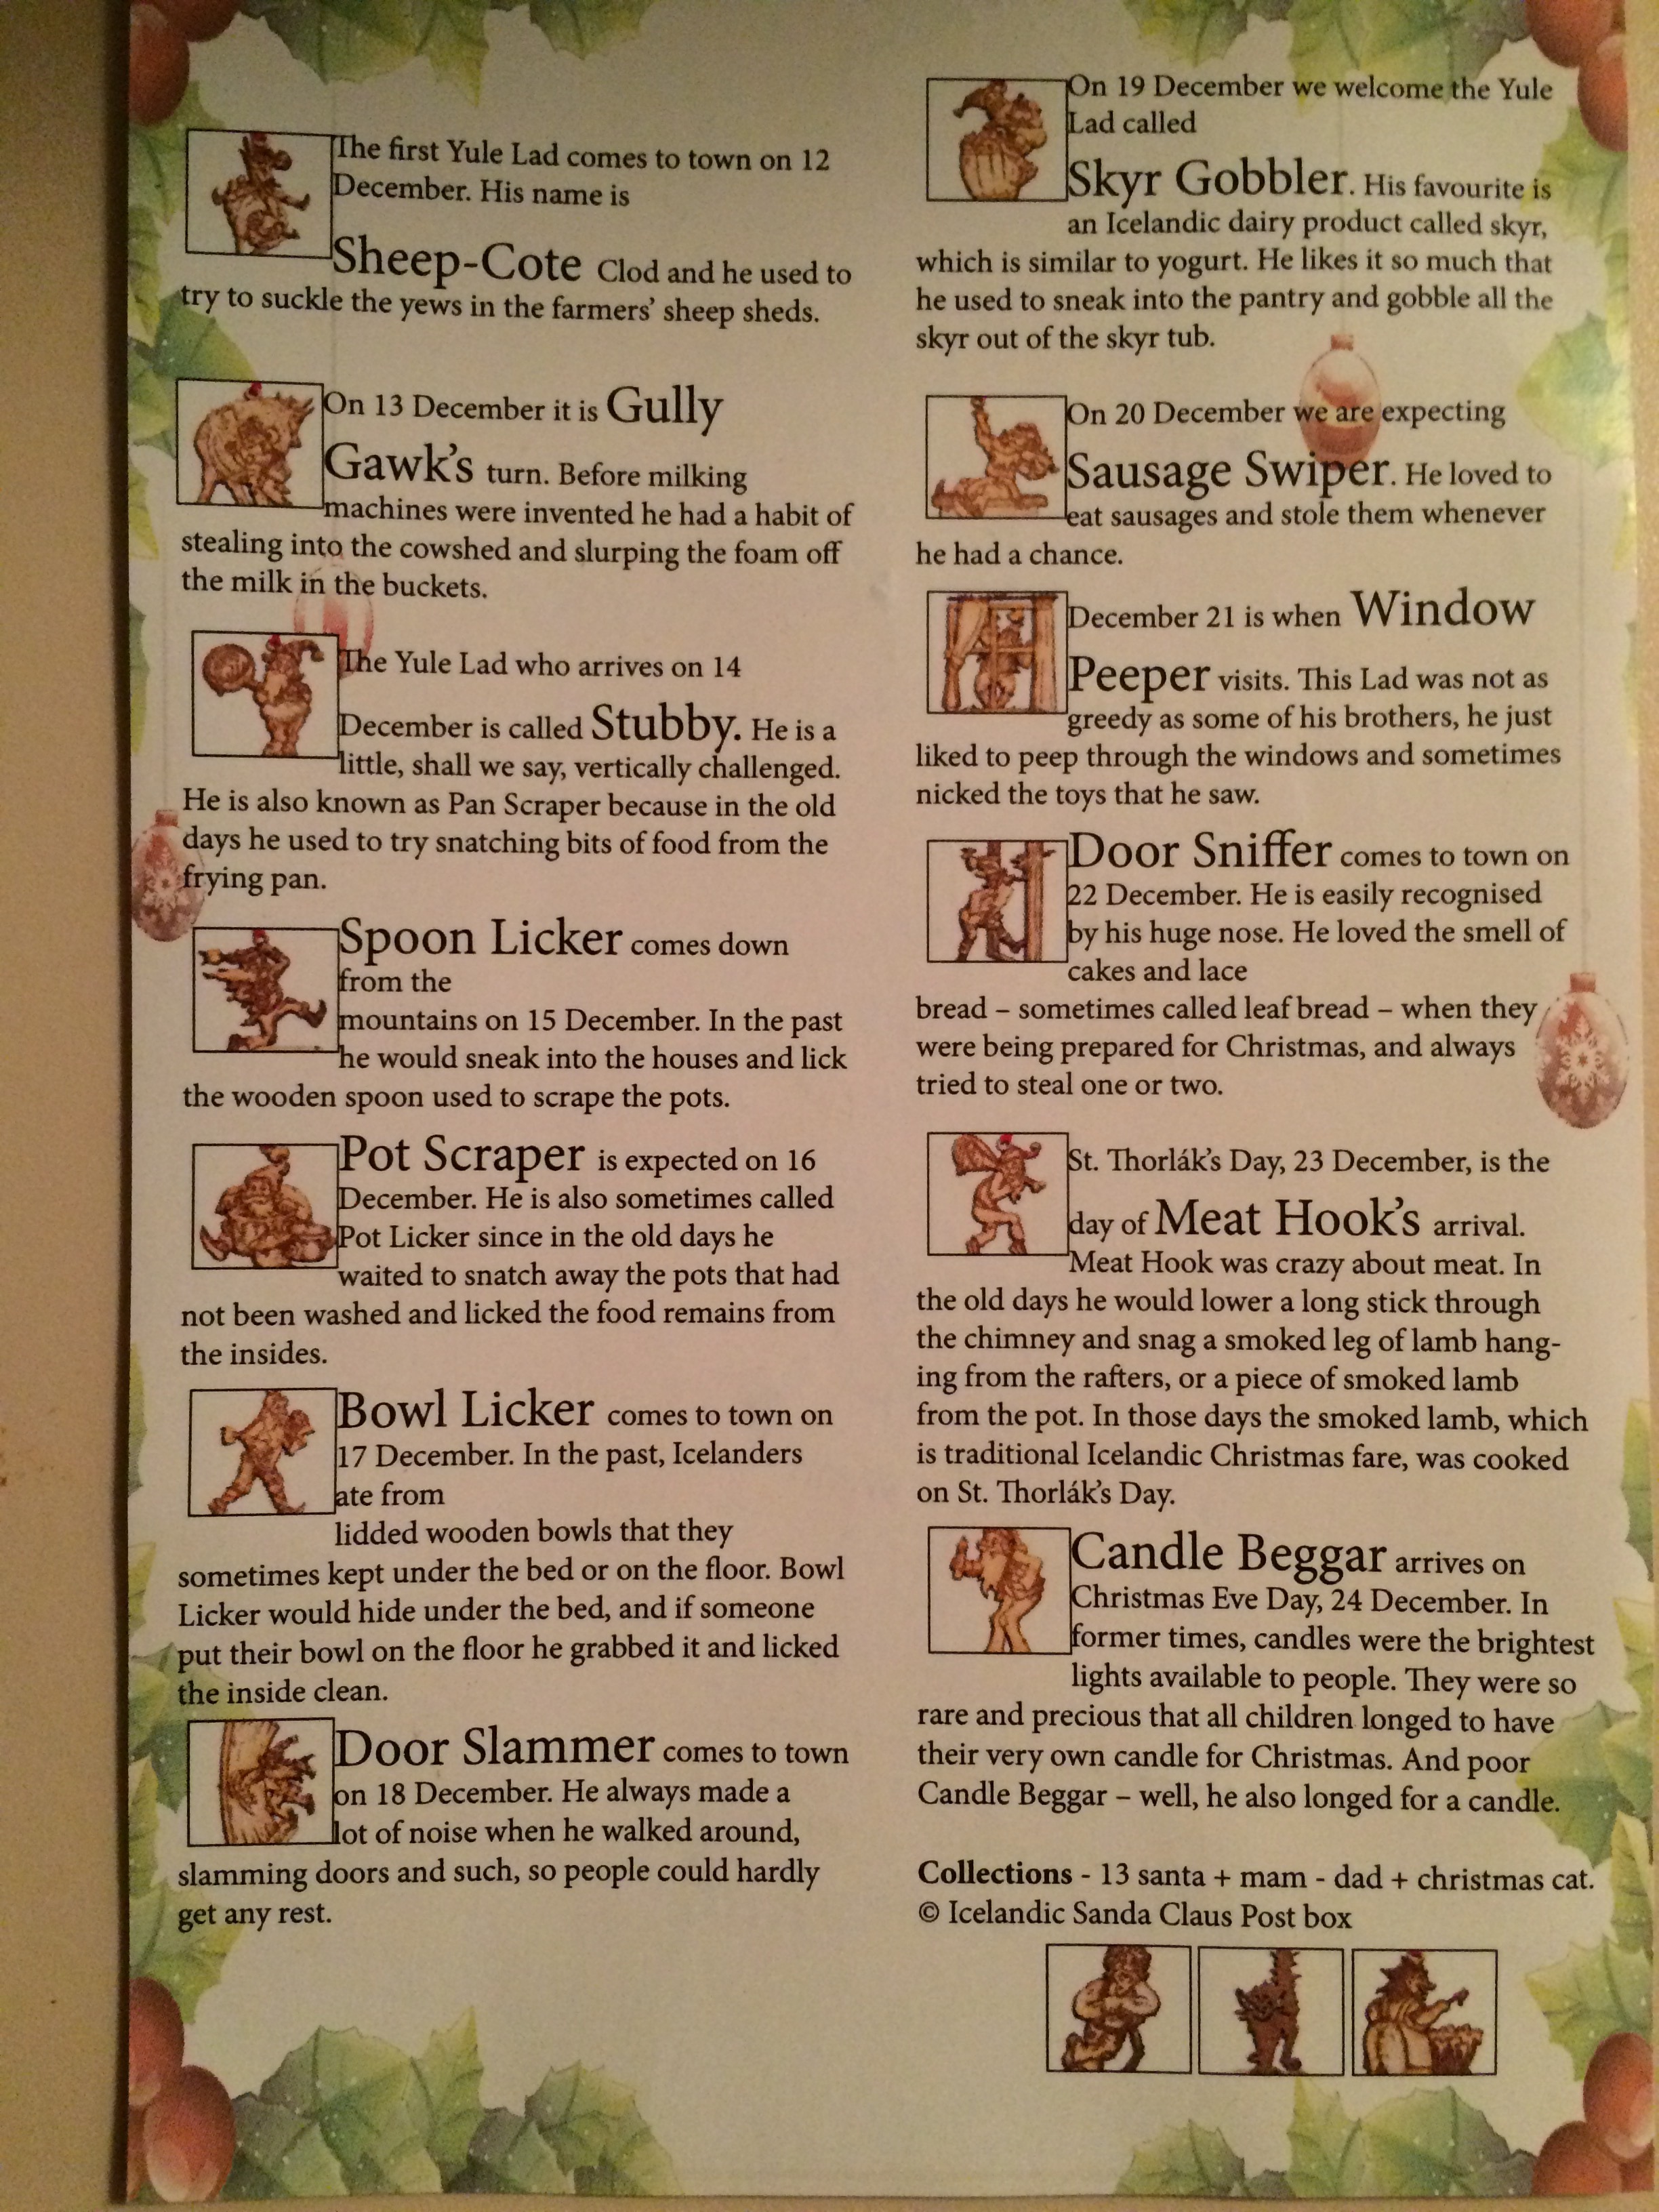 The first Yule Lad comes to town on 12
December. His name is
Sheep-Cote Clod and he used to
try to suckle the yews in the farmers' sheep sheds.
On 13 December it is Gully
Gawk's turn. Before milking
machines were invented he had a habit of
stealing into the cowshed and slurping the foam off
the milk in the buckets.
The Yule Lad who arrives on 14
December is called Stubby. He is a
little, shall we say, vertically challenged.
He is also known as Pan Scraper because in the old
days he used to try snatching bits of food from the
frying pan.
Spoon Licker comes down
from the
mountains on 15 December. In the past
he would sneak into the houses and lick
the wooden spoon used to scrape the pots.
Pot Scraper is expected on 16
December. He is also sometimes called
Pot Licker since in the old days he
waited to snatch away the pots that had
not been washed and licked the food remains from
the insides.
Bowl Licker comes to town on
17 December. In the past, Icelanders
ate from
lidded wooden bowls that they
sometimes kept under the bed or on the floor. Bowl
Licker would hide under the bed, and if someone
put their bowl on the floor he grabbed it and licked
the inside clean.
Door Slammer comes to town
on 18 December. He always made a
lot of noise when he walked around,
slamming doors and such, so people could hardly
get any rest.
On 19 December we welcome the Yule
Lad called
Skyr Gobbler. His favourite is
an Icelandic dairy product called skyr,
which is similar to yogurt. He likes it so much that
he used to sneak into the pantry and gobble all the
skyr out of the skyr tub.
On 20 December we are expecting
Sausage Swiper. He loved to
eat sausages and stole them whenever
he had a chance.
December 21 is when Window
Peeper visits. This Lad was not as
greedy as some of his brothers, he just
liked to peep through the windows and sometimes
nicked the toys that he saw.
Door Sniffer comes to town on
22 December. He is easily recognised
by his huge nose. He loved the smell of
cakes and lace
bread – sometimes called leaf bread – when they
were being prepared for Christmas, and always
tried to steal one or two.
St. Thorlák's Day, 23 December, is the
day of Meat Hook's arrival.
Meat Hook was crazy about meat. In
the old days he would lower a long stick through
the chimney and snag a smoked leg of lamb hang-
ing from the rafters, or a piece of smoked lamb
from the pot. In those days the smoked lamb, which
is traditional Icelandic Christmas fare, was cooked
on St. Thorlák's Day.
Candle Beggar arrives on
Christmas Eve Day, 24 December. In
former times, candles were the brightest
lights available to people. They were so
rare and precious that all children longed to have
their very own candle for Christmas. And poor
Candle Beggar – well, he also longed for a candle.
Collections - 13 santa + mam - dad + christmas cat.
© Icelandic Sanda Claus Post box